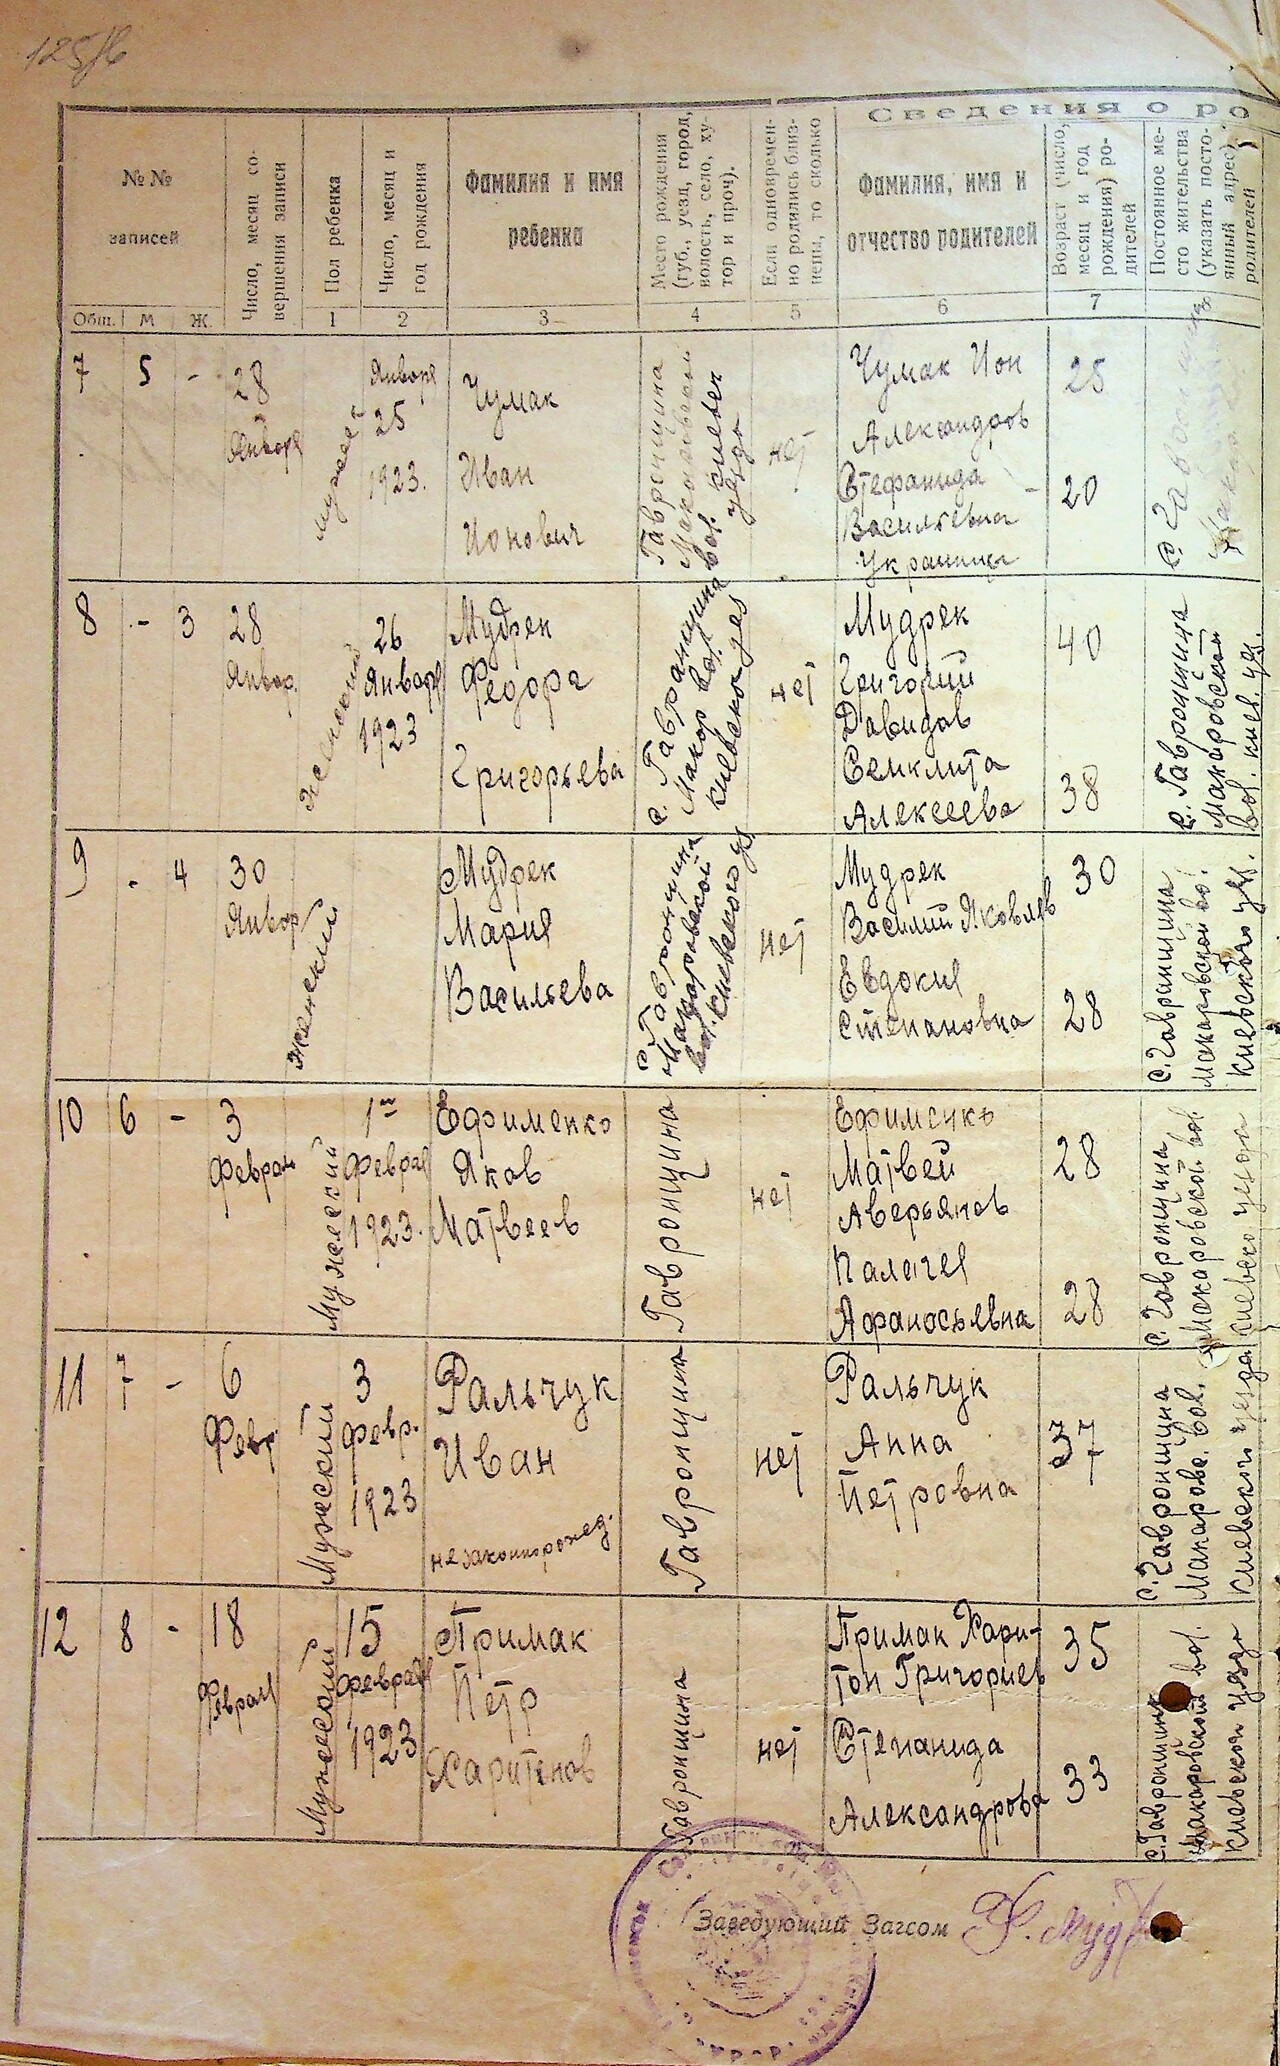 125/6
Сведения о ро
№ №
записей
Число, месяц со-
вершения записи
Пол ребенка
Число, месяц и
год рождения
Фамилия и имя
ребенка
Место рождения
(губ., уезд, город,
волость, село, ху-
тор и проч).
Если одновремен-
но родились близ-
нецы, то сколько
Фамилия, имя и
отчество родителей
Возраст (число,
месяц и год
рождения) ро-
дителей
Постоянное ме-
сто жительства
(указать посто-
янный адрес)
родителей
Общ. М Ж. 1 2 3 4 5 6 7 8
7 5 -
28
Января
мужской
Января
25
1923.
Чумак
Иван
Ионович
Гавронщина
нет
Чумак Ион
Александров
Стефанида
Васильевна
Украинцы
25
20
8 - 3
28
Январ.
Женский
26
Января
1923
Мудрек
Федора
Григорьева
с. Гавронщина
Макар вол.
нет
Мудрек
Григорий
Давидов
Алексеева
40
38
с. Гавронщина
Макаровской
вол. киев. уез.
9 - 4
30
Январ
женский
Мудрек
Мария
Васильева
с. Гавронщина
Макаровской
вол. Киевского уз
нет
Мудрек
Василий Яковлев
Евдокия
Степановна
30
28
с. Гавронщина
макаровской вол.
киевского уез.
10 6 -
3
Феврал
Мужеский
1го
Февраля
1923.
Ефименко
Яков
Матвеев
Гавронщина
нет
Ефименко
Матвей
Аверьянов
Афанасьевна
28
28
с. Гавронщина
Макаровской вол
киевско уезда
11 7 -
6
Февр
Мужеский
3
Февр.
1923
Фальчук
Иван
незаконнорожед.
Гавронщина
нет
Фальчук
Анна
Петровна
37
с. Гавронщина
Макаровс. вол.
Киевского уезда
12 8 -
18
Февраля
Мужеский
15
Февраля
1923
Примак
Петр
Харитонов
Гавронщина
нет
Примак Хари-
тон Григориев
Степанида
Александрова
35
33
с. Гавронщина
макаровской вол.
киевской уезда
Заведующий Загсом